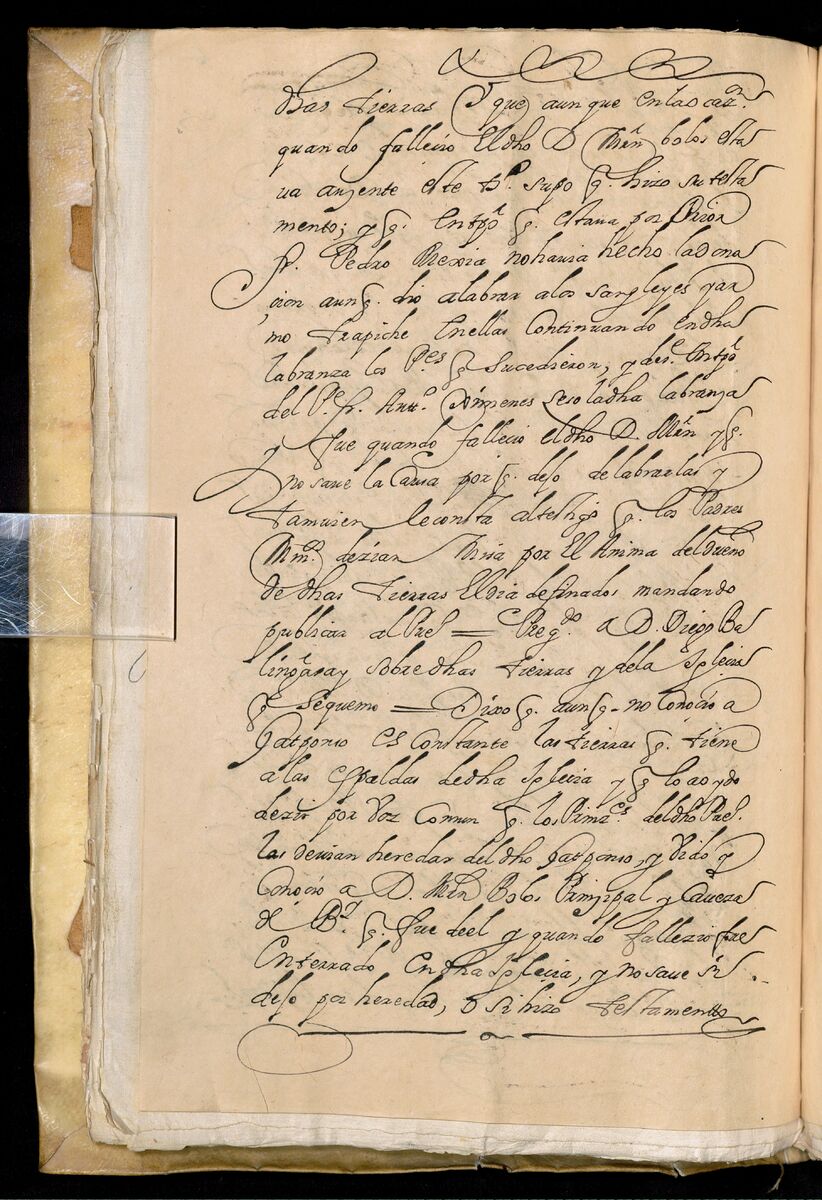 dhas tierras (y que) aunque en la oca.on
quando fallecio El dho D. Mrn bolos esta
ua auzente este to. supo q. hizo su testa
mento; y q. En tpo q. estaua por Prior
fr. Pedro Mexia no hauia hecho la dona
cion aunq. dio a labrar a los sangleyes y ar
mo trapiche En ellas Continuando En dha
labranza los Pes. q sucedieron, y
del Pe. fr. Anto. Ximenes seso la dha labranza
y fue quando fallecio el dho D. Mrn y q.
no saue la Causa por q. dejo de labrarlas y
tamuien le consta al testigo q. los Padres
Mros. dezian Misa por El Anima del Dueño
de dhas tierras El dia de finados mandando
publicar al = Preg.do a D. Diego Ba
lingasay sobre dhas tierras y de la Iglecia
q se quemo = Dixo q. aunq. no Conocio a
Gatponso es Constante las tierras q. tiene
a las espaldas de dha Iglecia y q lo a oydo
dezir por Voz Comun q. los del dho
las deuian heredar del dho Gatponso, y Vido y
Conocio a D. Mrn Bolos Principal y Caueza
de q. fue de el y quando fallezio fue
Enterrado En dha Iglecia, y no saue si
dejo por heredad, o si hizo testamento